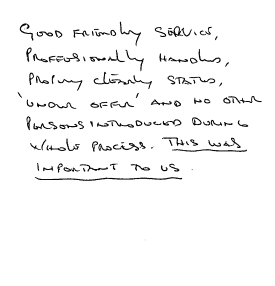 GOOD FRIENDLY SERVICE,
PROFESSIONALLY HANDLED,
PROPERTY CLEARLY STATED,
'UNDER OFFER' AND NO OTHER
PERSONS INTRODUCED DURING
WHOLE PROCESS. THIS WAS
IMPORTANT TO US.